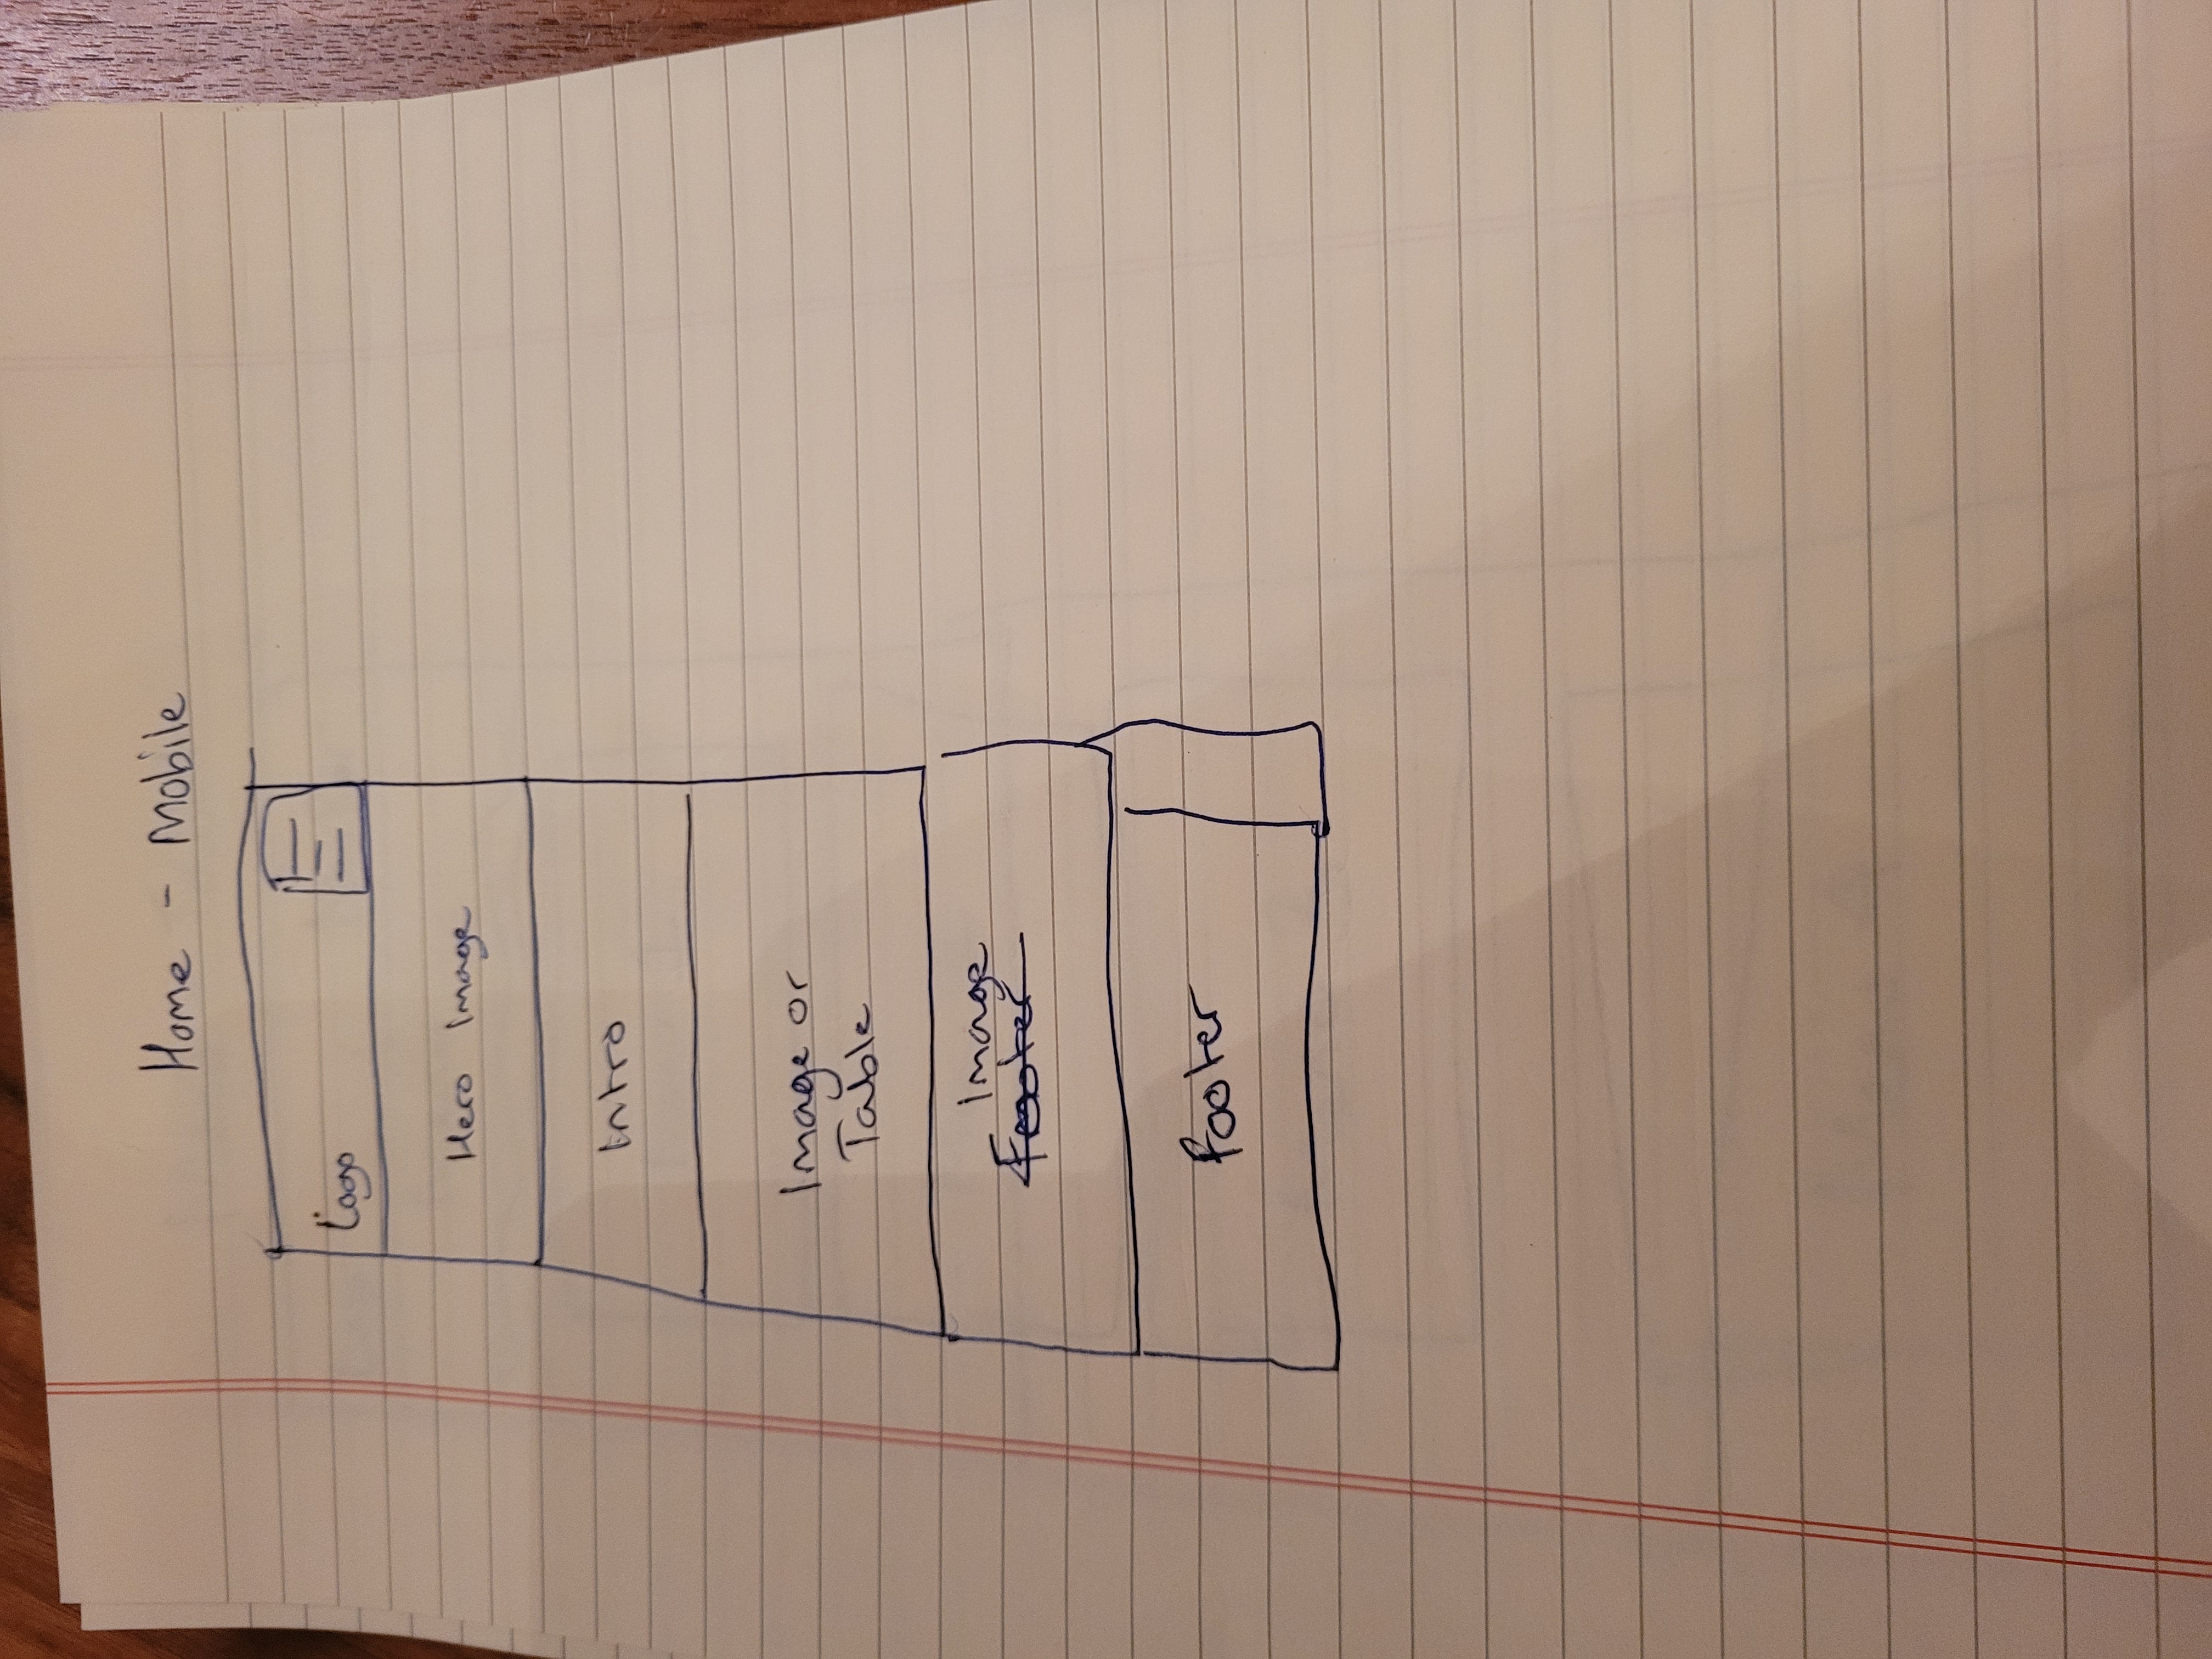 Home - Mobile
Logo
Hero Image
Intro
Image or
Table
Image
Footer
Footer